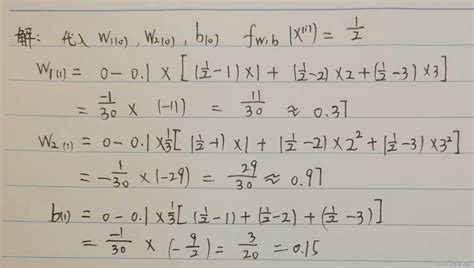 解: 代入 W₁₍₀₎, W₂₍₀₎, b₍₀₎ f_{w,b}(x⁽ⁱ⁾) = 1/2
W₁₍₁₎ = 0 - 0.1 × [ (1/2-1)×1 + (1/2-2)×2 + (1/2-3)×3 ]
= -1/30 × (-11) = 11/30 ≈ 0.37
W₂₍₁₎ = 0 - 0.1 × 1/3 [ (1/2-1)×1 + (1/2-2)×2² + (1/2-3)×3² ]
= -1/30 × (-29) = 29/30 ≈ 0.97
b₍₁₎ = 0 - 0.1 × 1/3 [ (1/2-1) + (1/2-2) + (1/2-3) ]
= -1/30 × (-9/2) = 3/20 = 0.15